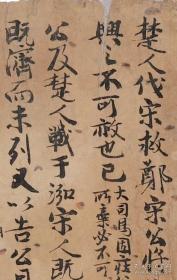 楚人伐宋救鄭宋公將
興之不可赦也已大司馬固莊
所棄必不可
公及楚人戰于泓宋人既
既濟而未列又以告公曰